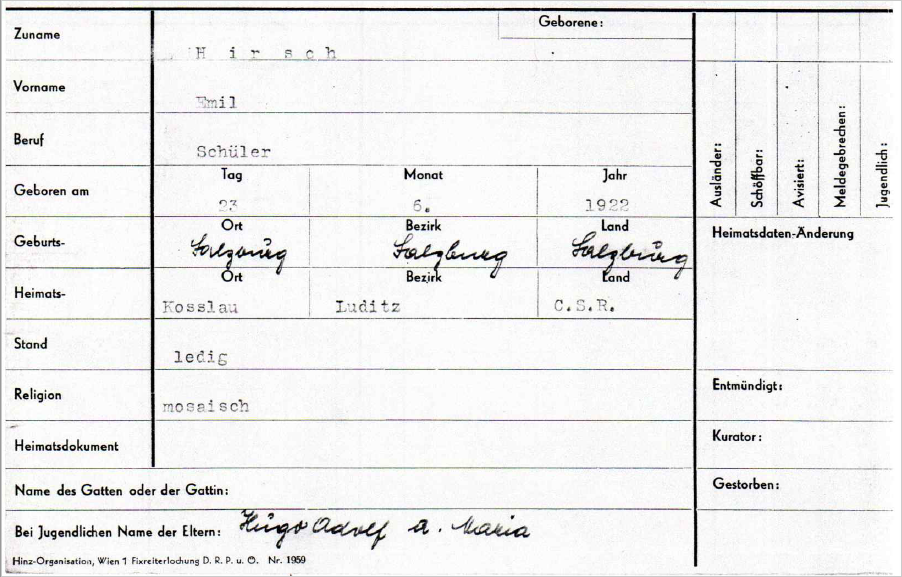 Zuname H i r s c h Geborene:
Vorname Emil
Beruf Schüler
Tag Monat Jahr
Geboren am 23 6. 1922
Ort Bezirk Land
Geburts- Salzburg Salzburg Salzburg
Ort Bezirk Land
Heimats- Kosslau Luditz C.S.R.
Stand ledig
Religion mosaisch
Heimatsdokument
Name des Gatten oder der Gattin:
Bei Jugendlichen Name der Eltern: Hugo Adolf u. Maria
Hinz-Organisation, Wien 1 Fixreiterlochung D. R. P. u. Ö. Nr. 1959
Ausländer:
Schöffbar:
Avisiert:
Meldegebrechen:
Jugendlich:
Heimatsdaten-Änderung
Entmündigt:
Kurator:
Gestorben: